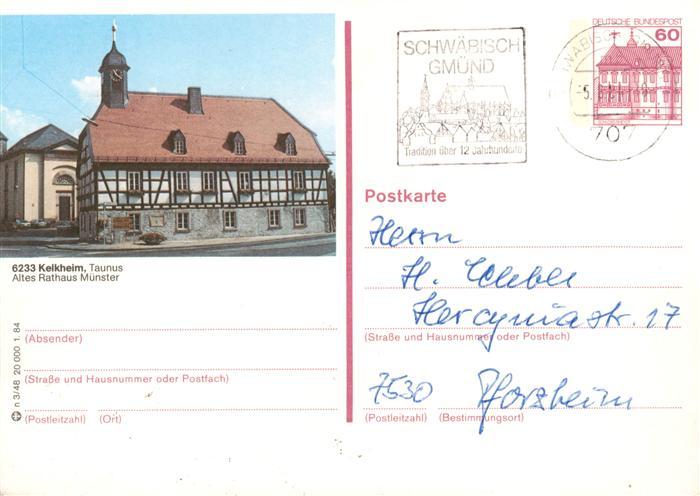 SCHWÄBISCH
GMÜND
Tradition über 12 Jahrhunderte
DEUTSCHE BUNDESPOST
60
707
6233 Kelkheim, Taunus
Altes Rathaus Münster
(Absender)
(Straße und Hausnummer oder Postfach)
(Postleitzahl) (Ort)
n 3/48 20 000 1. 84
Postkarte
Herrn
H.
Hercyniastr. 17
(Straße und Hausnummer oder Postfach)
7530 Pforzheim
(Postleitzahl) (Bestimmungsort)